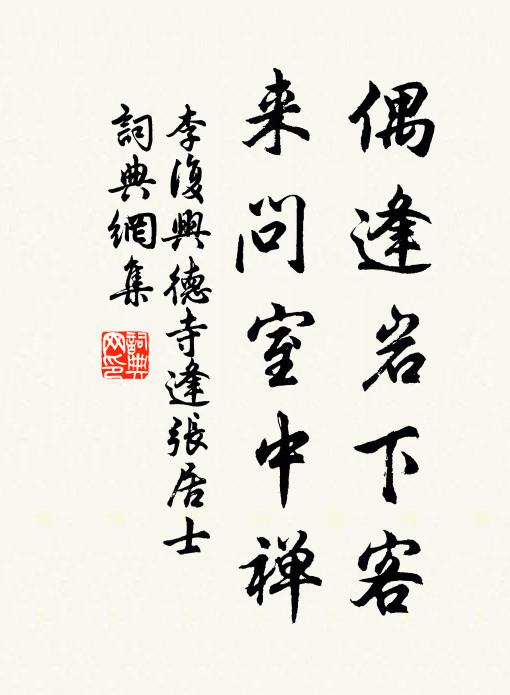 偶逢岩下客
来问室中禅
李復興德寺逢張居士
詞典網集
詞典網印